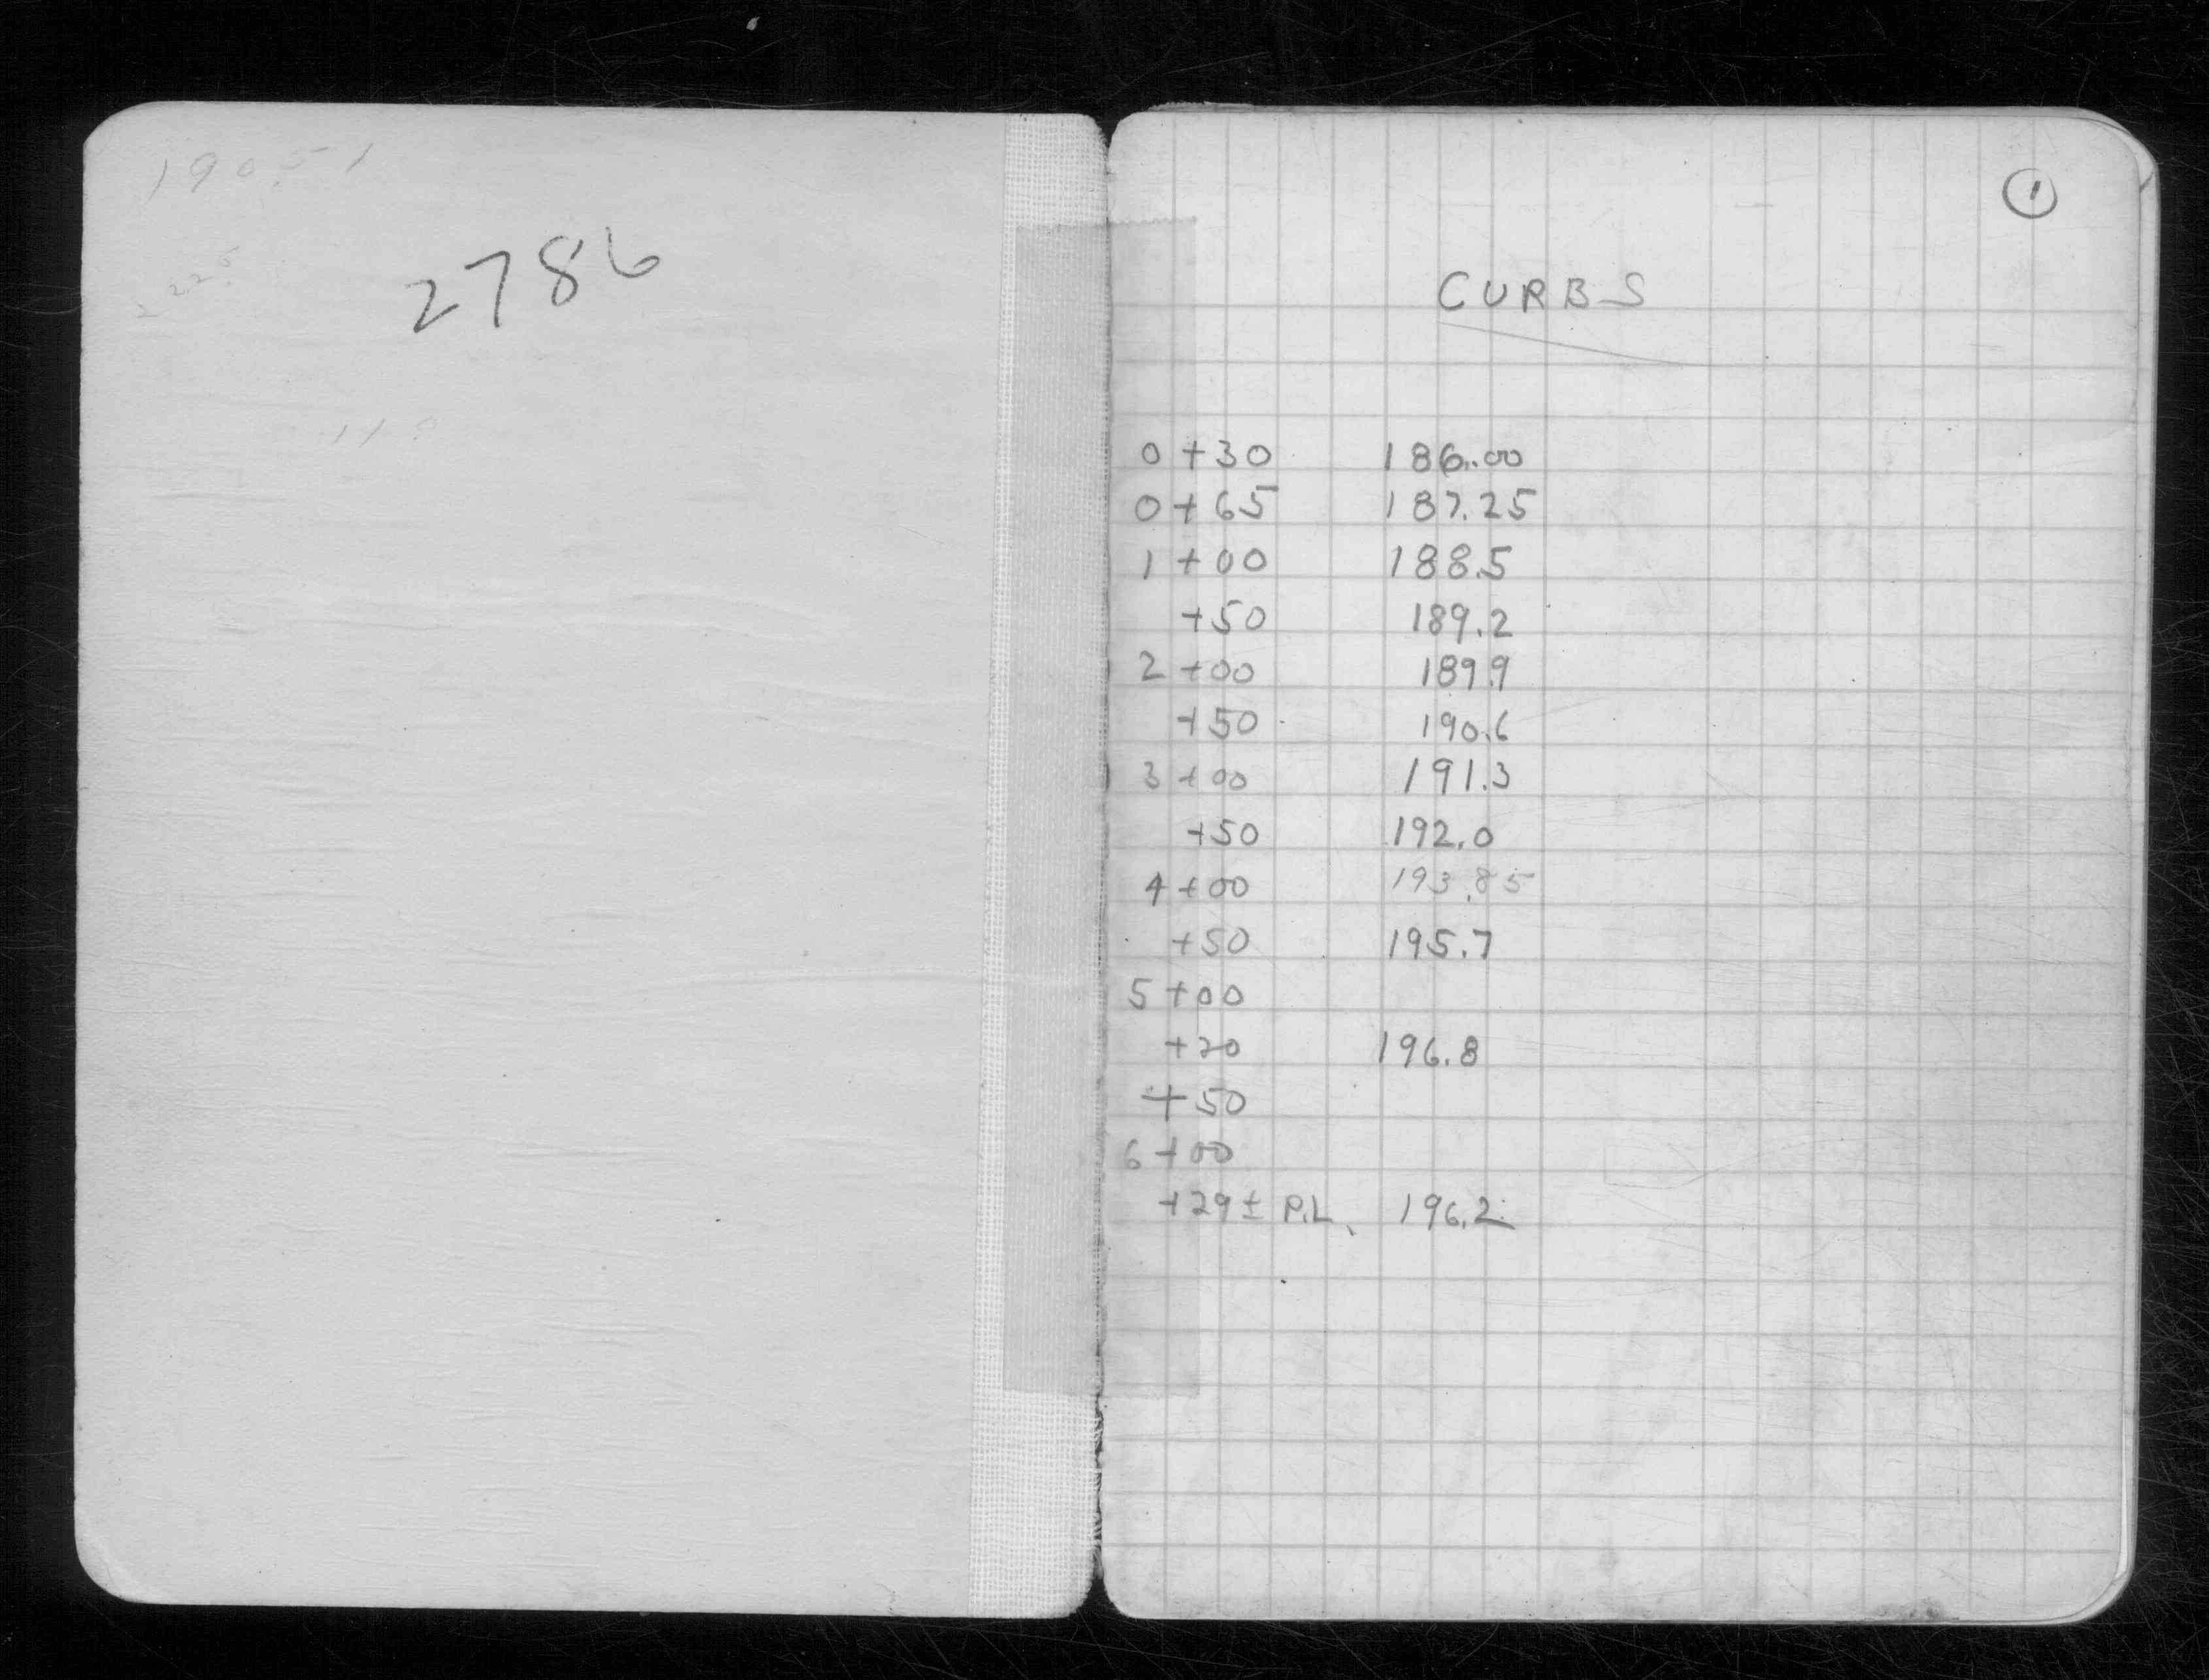 190.51
2786
①
CURBS
0+30 186.00
0+65 187.25
1+00 188.5
+50 189.2
2+00 189.9
+50 190.6
3+00 191.3
+50 192.0
4+00 193.85
+50 195.7
5+00
+20 196.8
+50
6+00
+29± P.L. 196.2